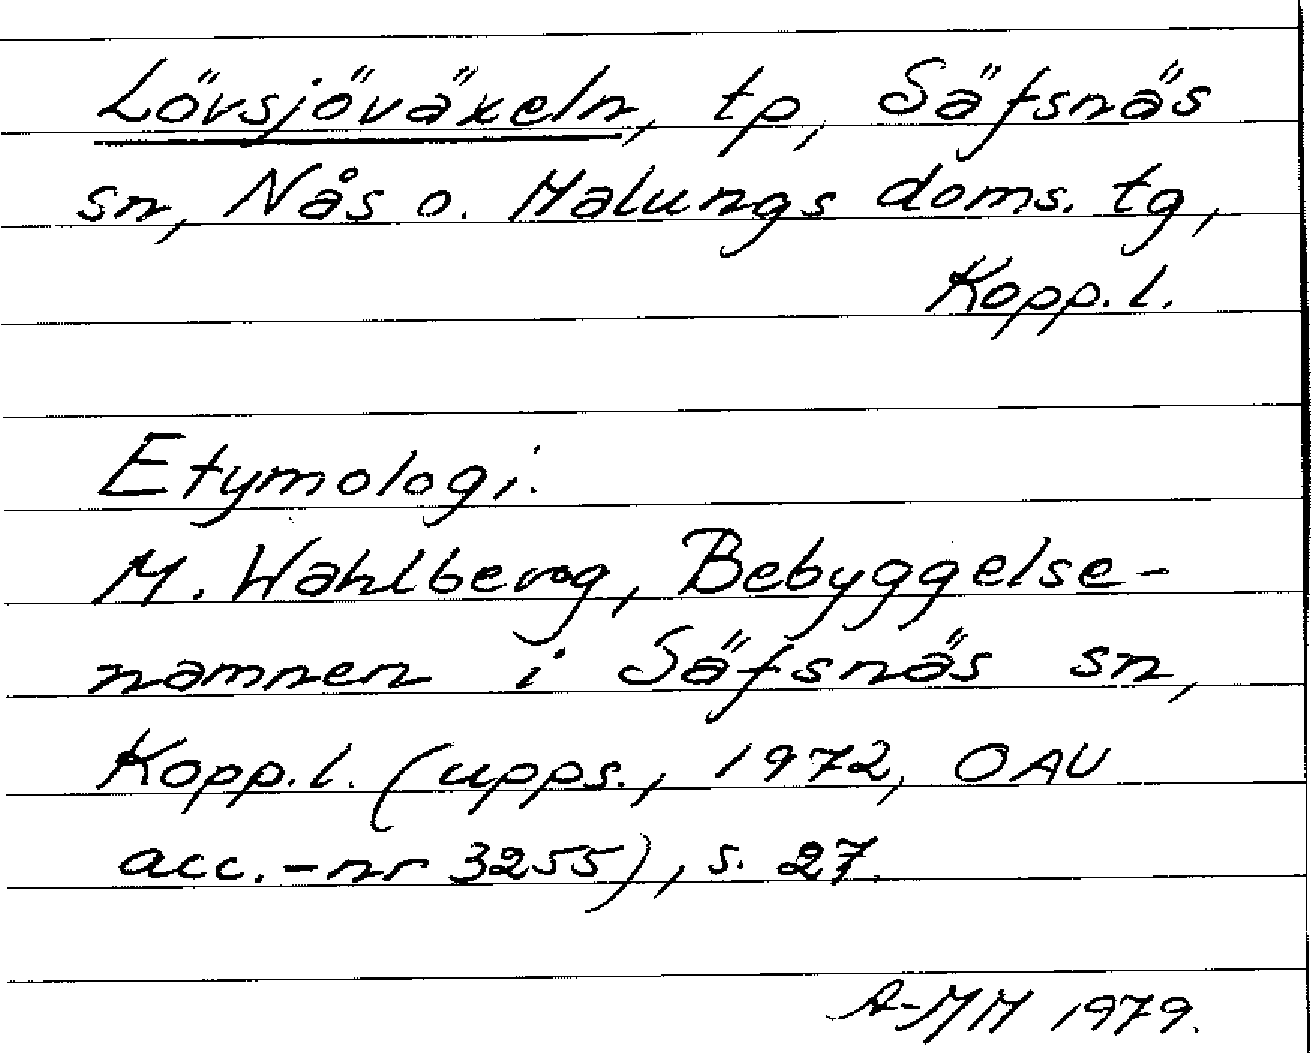 Lövsjöväxeln, tp, Säfsnäs
sn, Nås o. Malungs doms. tg,
Kopp. l.
Etymologi:
M. Wahlberg, Bebyggelse-
namnen i Säfsnäs sn,
Kopp. l. (upps., 1972, OAU
acc.-nr 3255), s. 27.
A-MM 1979.